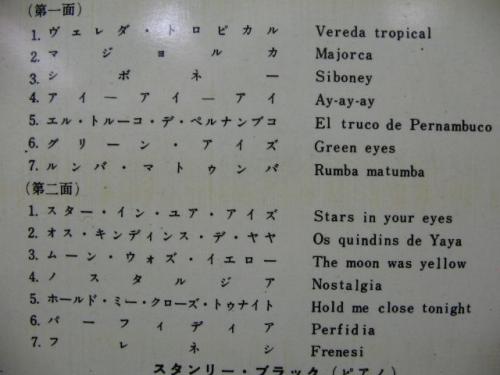 (第一面)
1. ヴェレダ・トロピカル Vereda tropical
2. マジョルカ Majorca
3. シボネー Siboney
4. アイーアイーアイ Ay-ay-ay
5. エル・トルーコ・デ・ペルナンブコ El truco de Pernambuco
6. グリーン・アイズ Green eyes
7. ルンバ・マトゥンバ Rumba matumba
(第二面)
1. スター・イン・ユア・アイズ Stars in your eyes
2. オス・キンディンス・デ・ヤヤ Os quindins de Yaya
3. ムーン・ウォズ・イエロー The moon was yellow
4. ノスタルジア Nostalgia
5. ホールド・ミー・クローズ・トゥナイト Hold me close tonight
6. パーフィディア Perfidia
7. フレネシ Frenesi
スタンリー・ブラック(ピアノ)